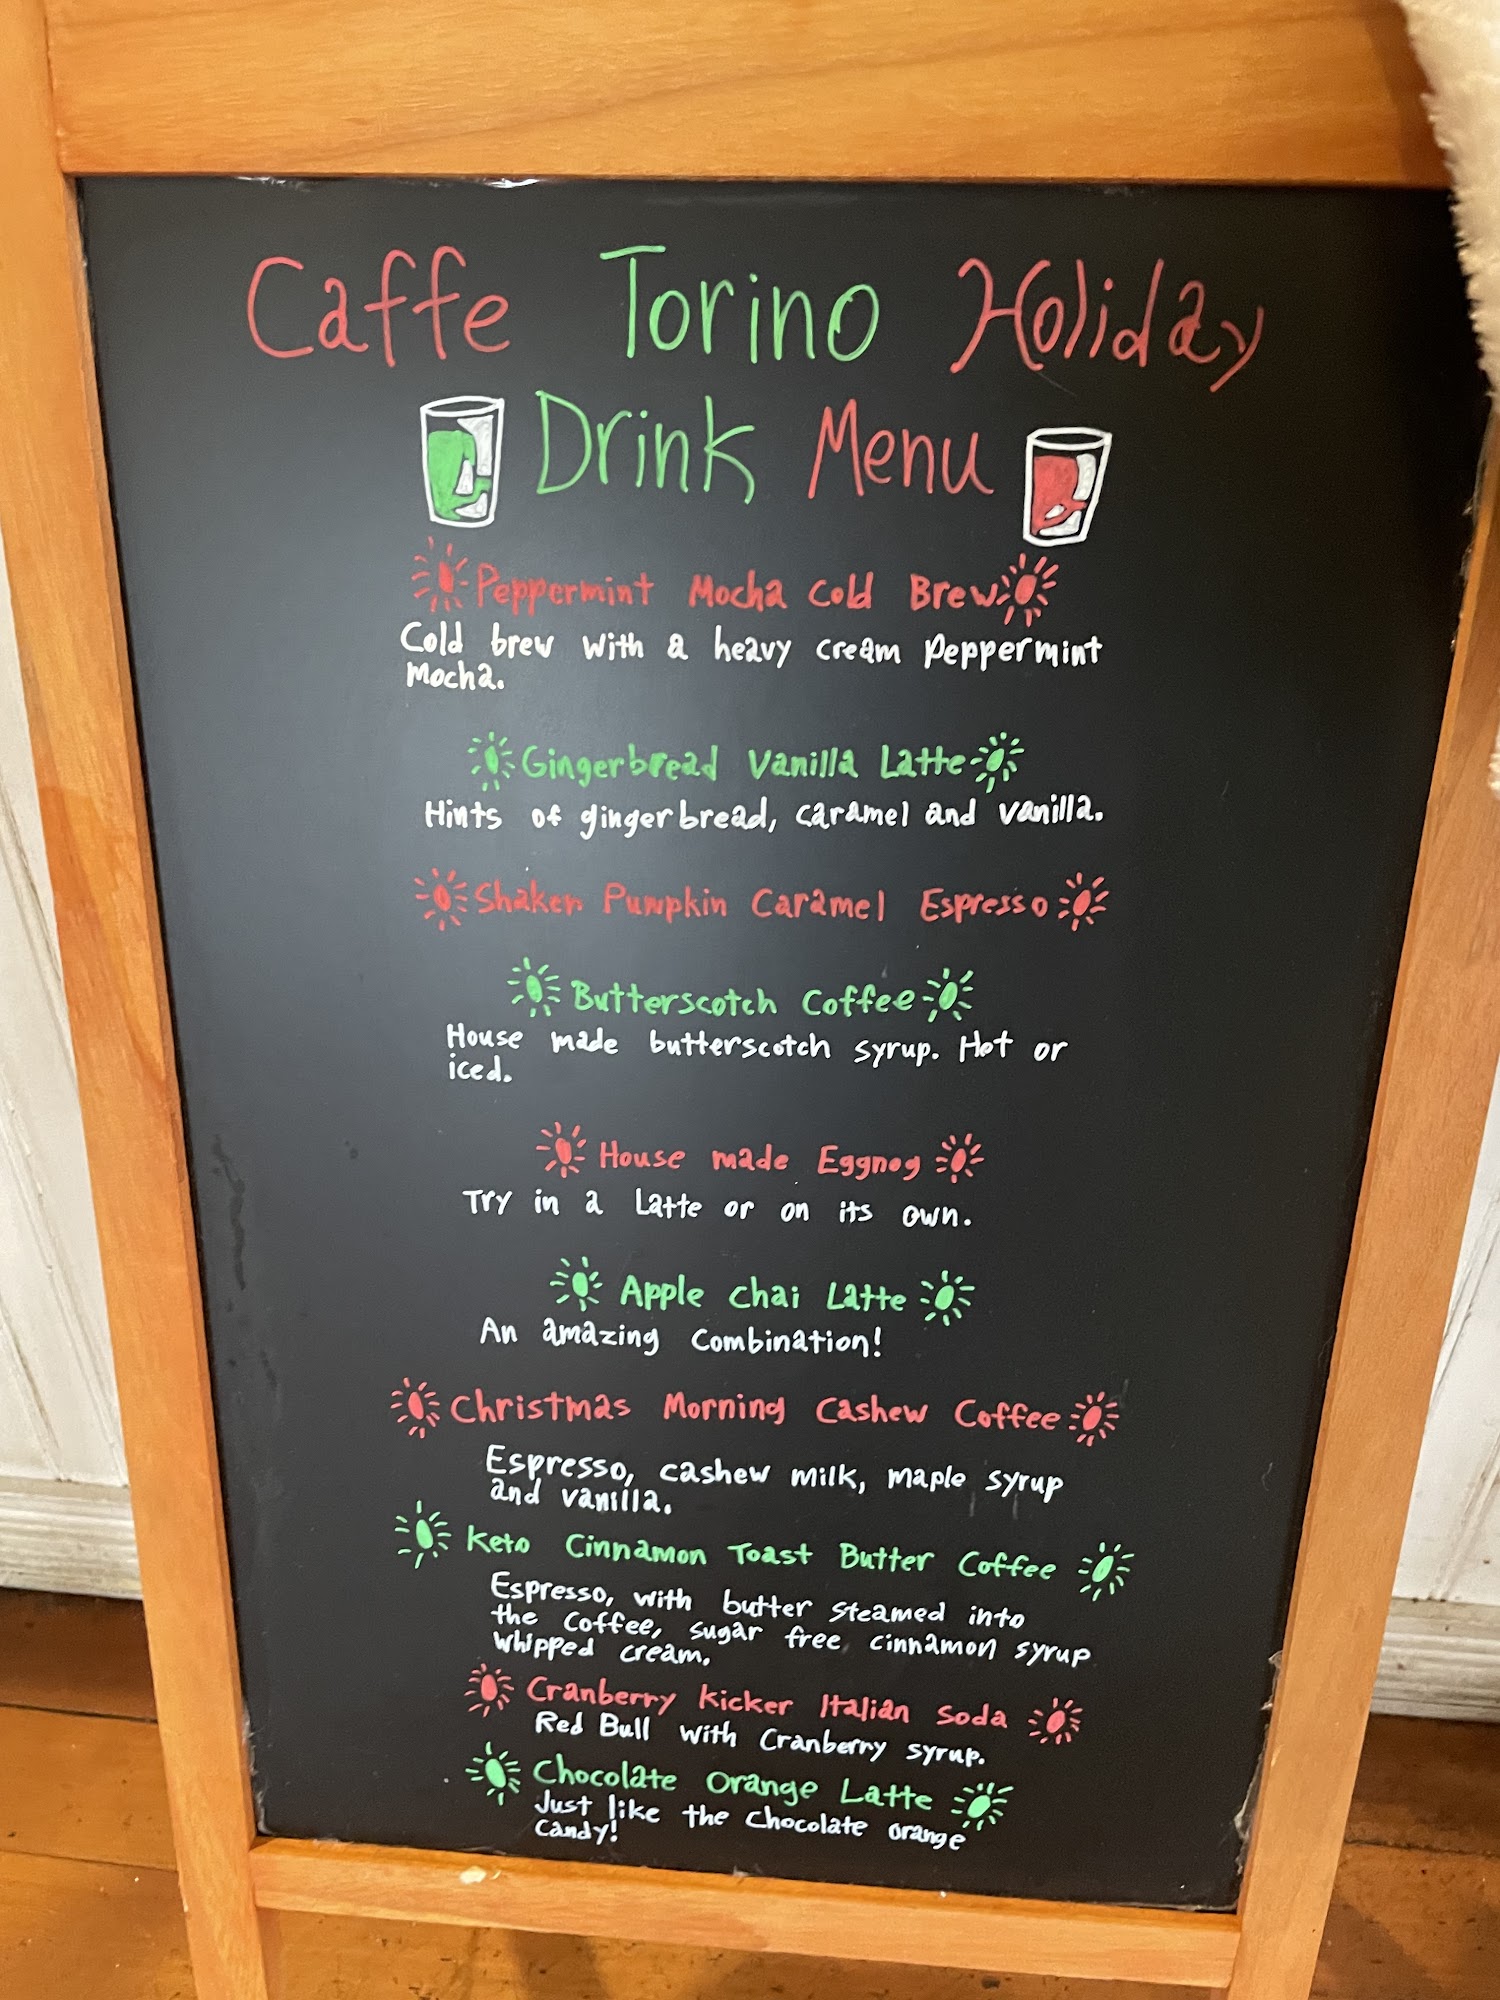 Caffe Torino Holiday
Drink Menu
Peppermint Mocha Cold Brew
Cold brew with a heavy cream peppermint
Mocha.
Gingerbread Vanilla Latte
Hints of gingerbread, caramel and vanilla.
Shaken Pumpkin Caramel Espresso
Butterscotch Coffee
House made butterscotch syrup. Hot or
iced.
House made Eggnog
Try in a Latte or on its own.
Apple Chai Latte
An amazing combination!
Christmas Morning Cashew Coffee
Espresso, cashew milk, maple syrup
and vanilla.
Keto Cinnamon Toast Butter Coffee
Espresso, with butter steamed into
the coffee, sugar free cinnamon syrup
whipped cream.
Cranberry Kicker Italian Soda
Red Bull with Cranberry syrup.
Chocolate Orange Latte
Just like the chocolate orange
candy!